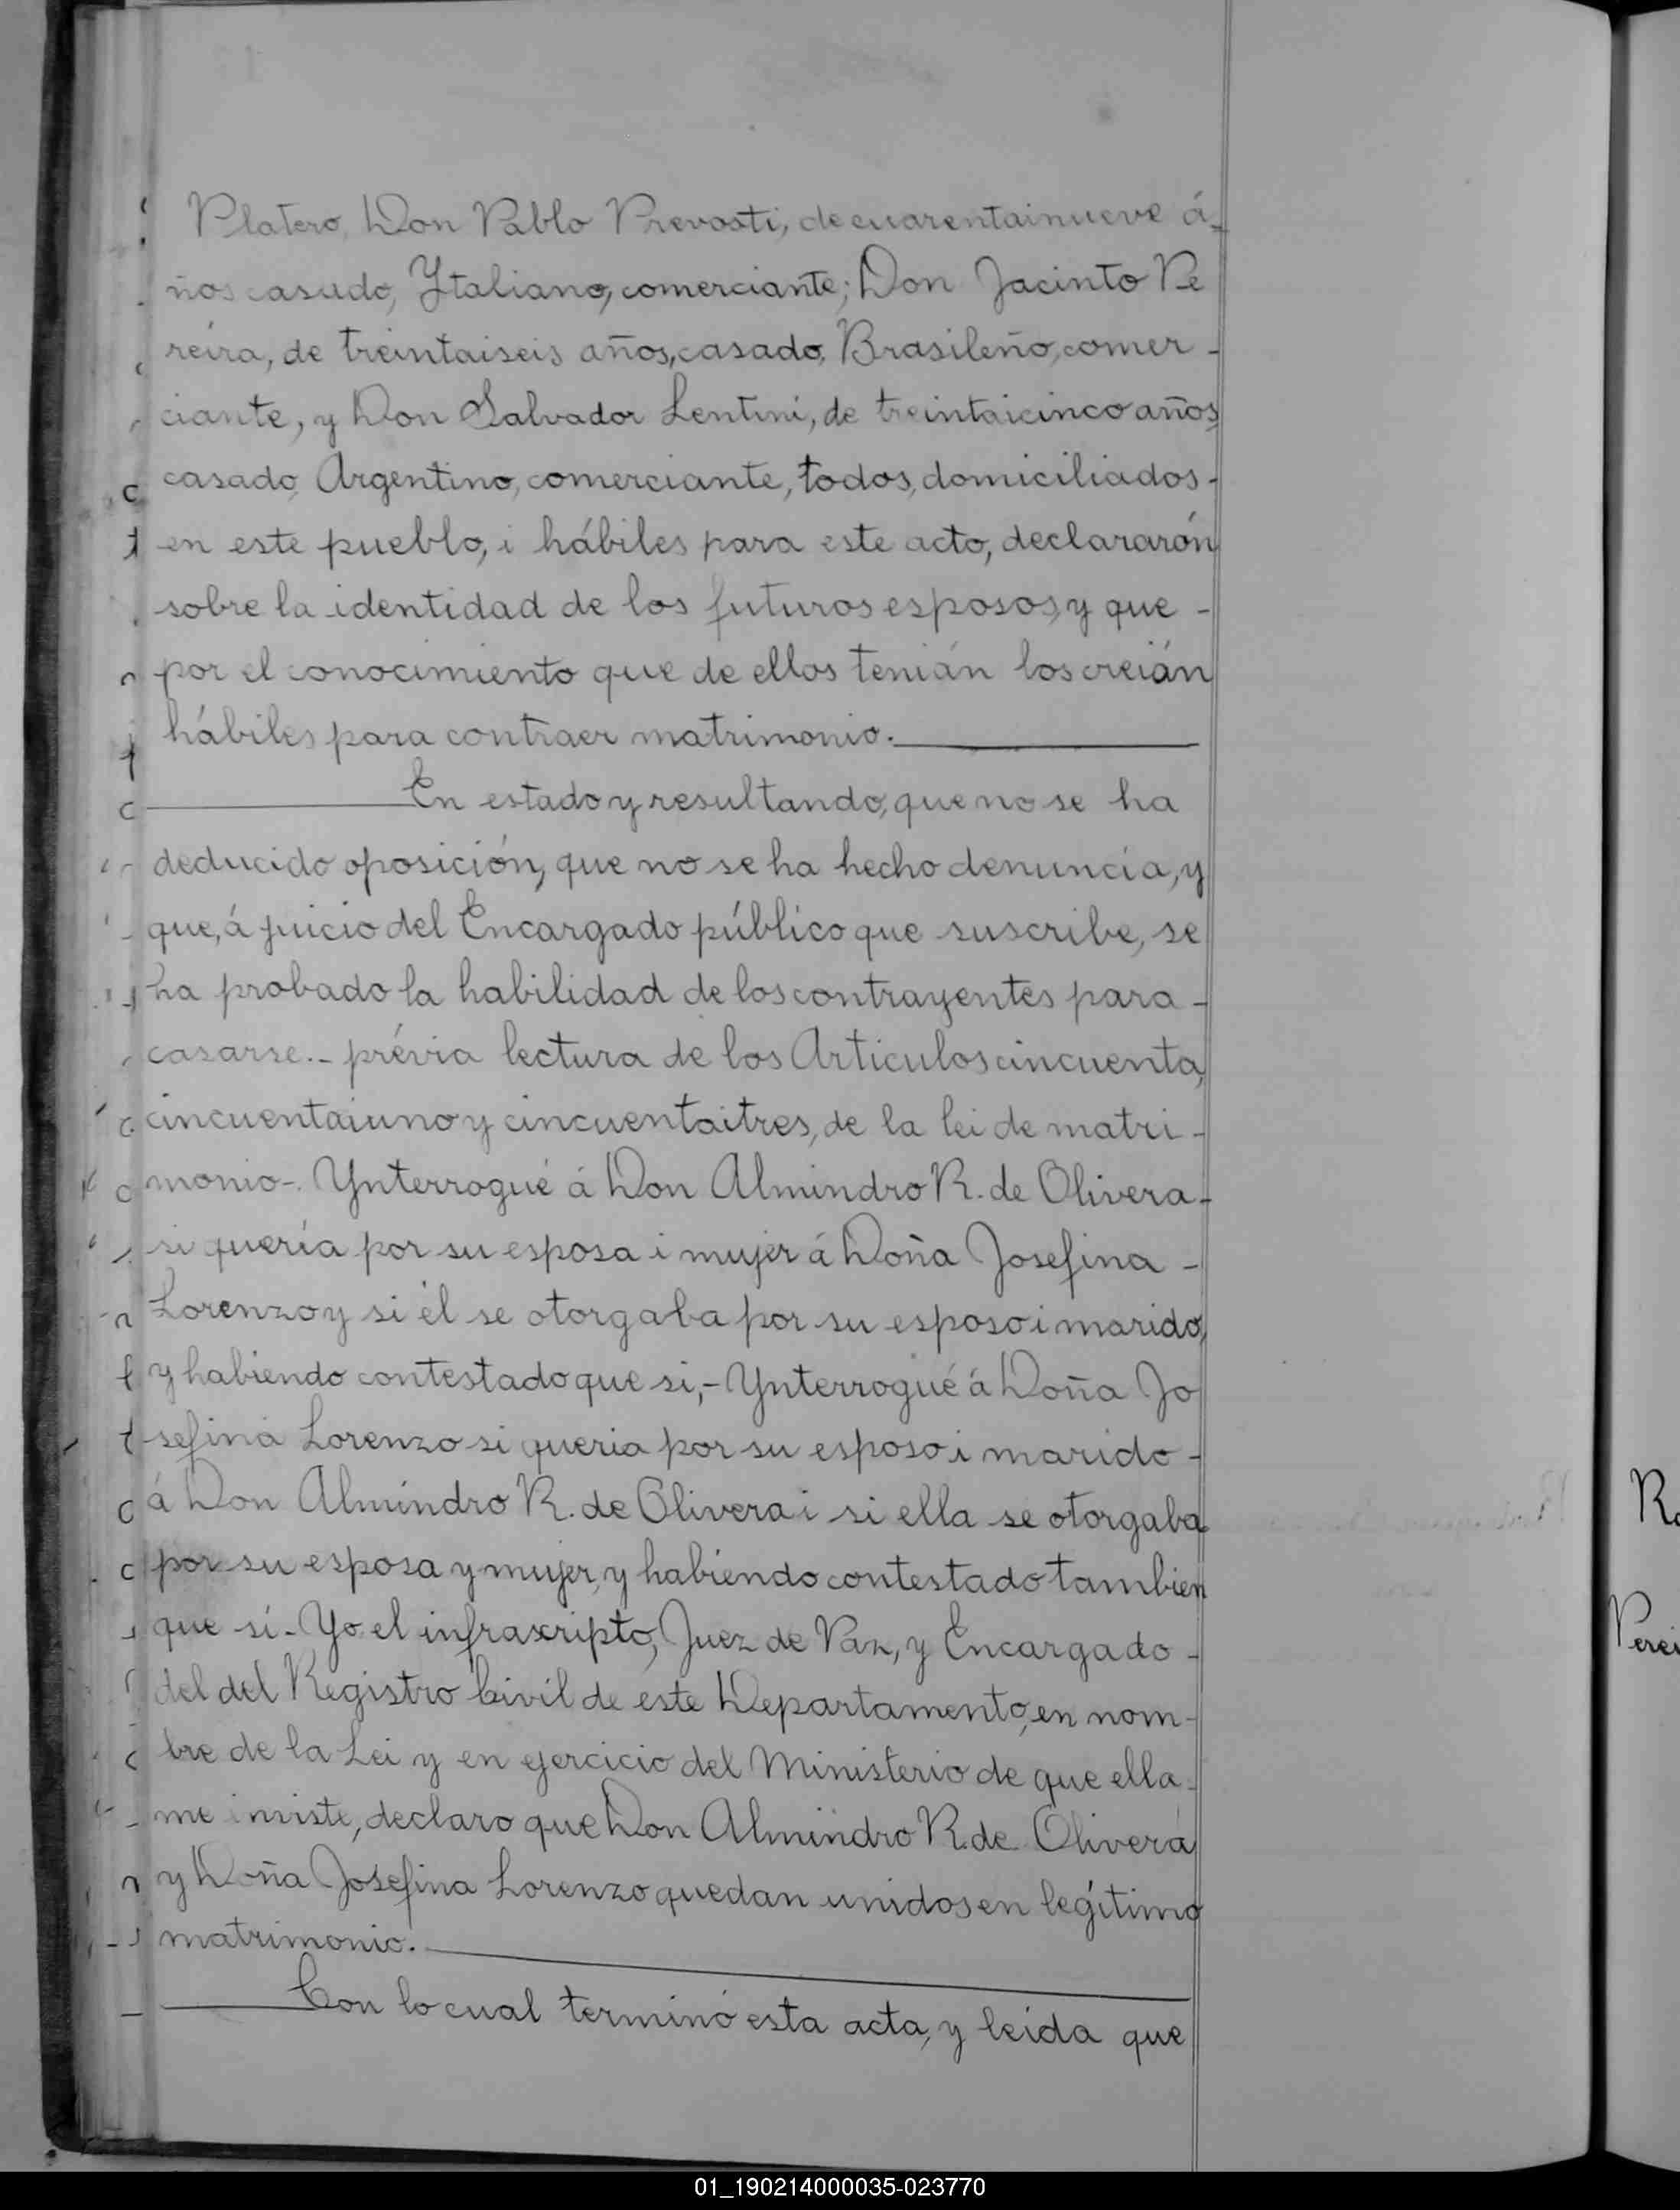 Platero, Don Pablo Prevosti, de cuarentainueve á-
ños casado, Ytaliano, comerciante; Don Jacinto Pe
reira, de treintaiseis años, casado, Brasileño, comer-
ciante, y Don Salvador Lentini, de treintaicinco años,
casado, Argentino, comerciante, todos, domiciliados-
en este pueblo, i hábiles para este acto, declararón
sobre la identidad de los futuros esposos, y que -
por el conocimiento que de ellos tenián los creián
hábiles para contraer matrimonio.
En estado y resultando, que no se ha
deducido oposición, que no se ha hecho denuncia, y
que, á juicio del Encargado público que suscribe, se
ha probado la habilidad de los contrayentes para -
casarse.- prévia lectura de los Articulos cincuenta,
cincuentaiuno y cincuentaitres, de la lei de matri-
monio-. Ynterrogué á Don Almindro R. de Olivera-
si quería por su esposa i mujer á Doña Josefina -
Lorenzo y si él se otorgaba por su esposo i marido,
y habiendo contestado que si,- Ynterrogué á Doña Jo
sefina Lorenzo si queria por su esposo i marido -
á Don Almindro R. de Olivera i si ella se otorgaba
por su esposa y mujer, y habiendo contestado tambien
que sí- Yo el infrascripto, Juez de Paz, y Encargado -
del del Registro Civil de este Departamento, en nom-
bre de la Lei y en ejercicio del Ministerio de que ella-
me inviste, declaro que Don Almindro R. de Oliverá
y Doña Josefina Lorenzo quedan unidos en legítimo
matrimonio.
Con lo cual terminó esta acta, y leida que
01_190214000035-023770